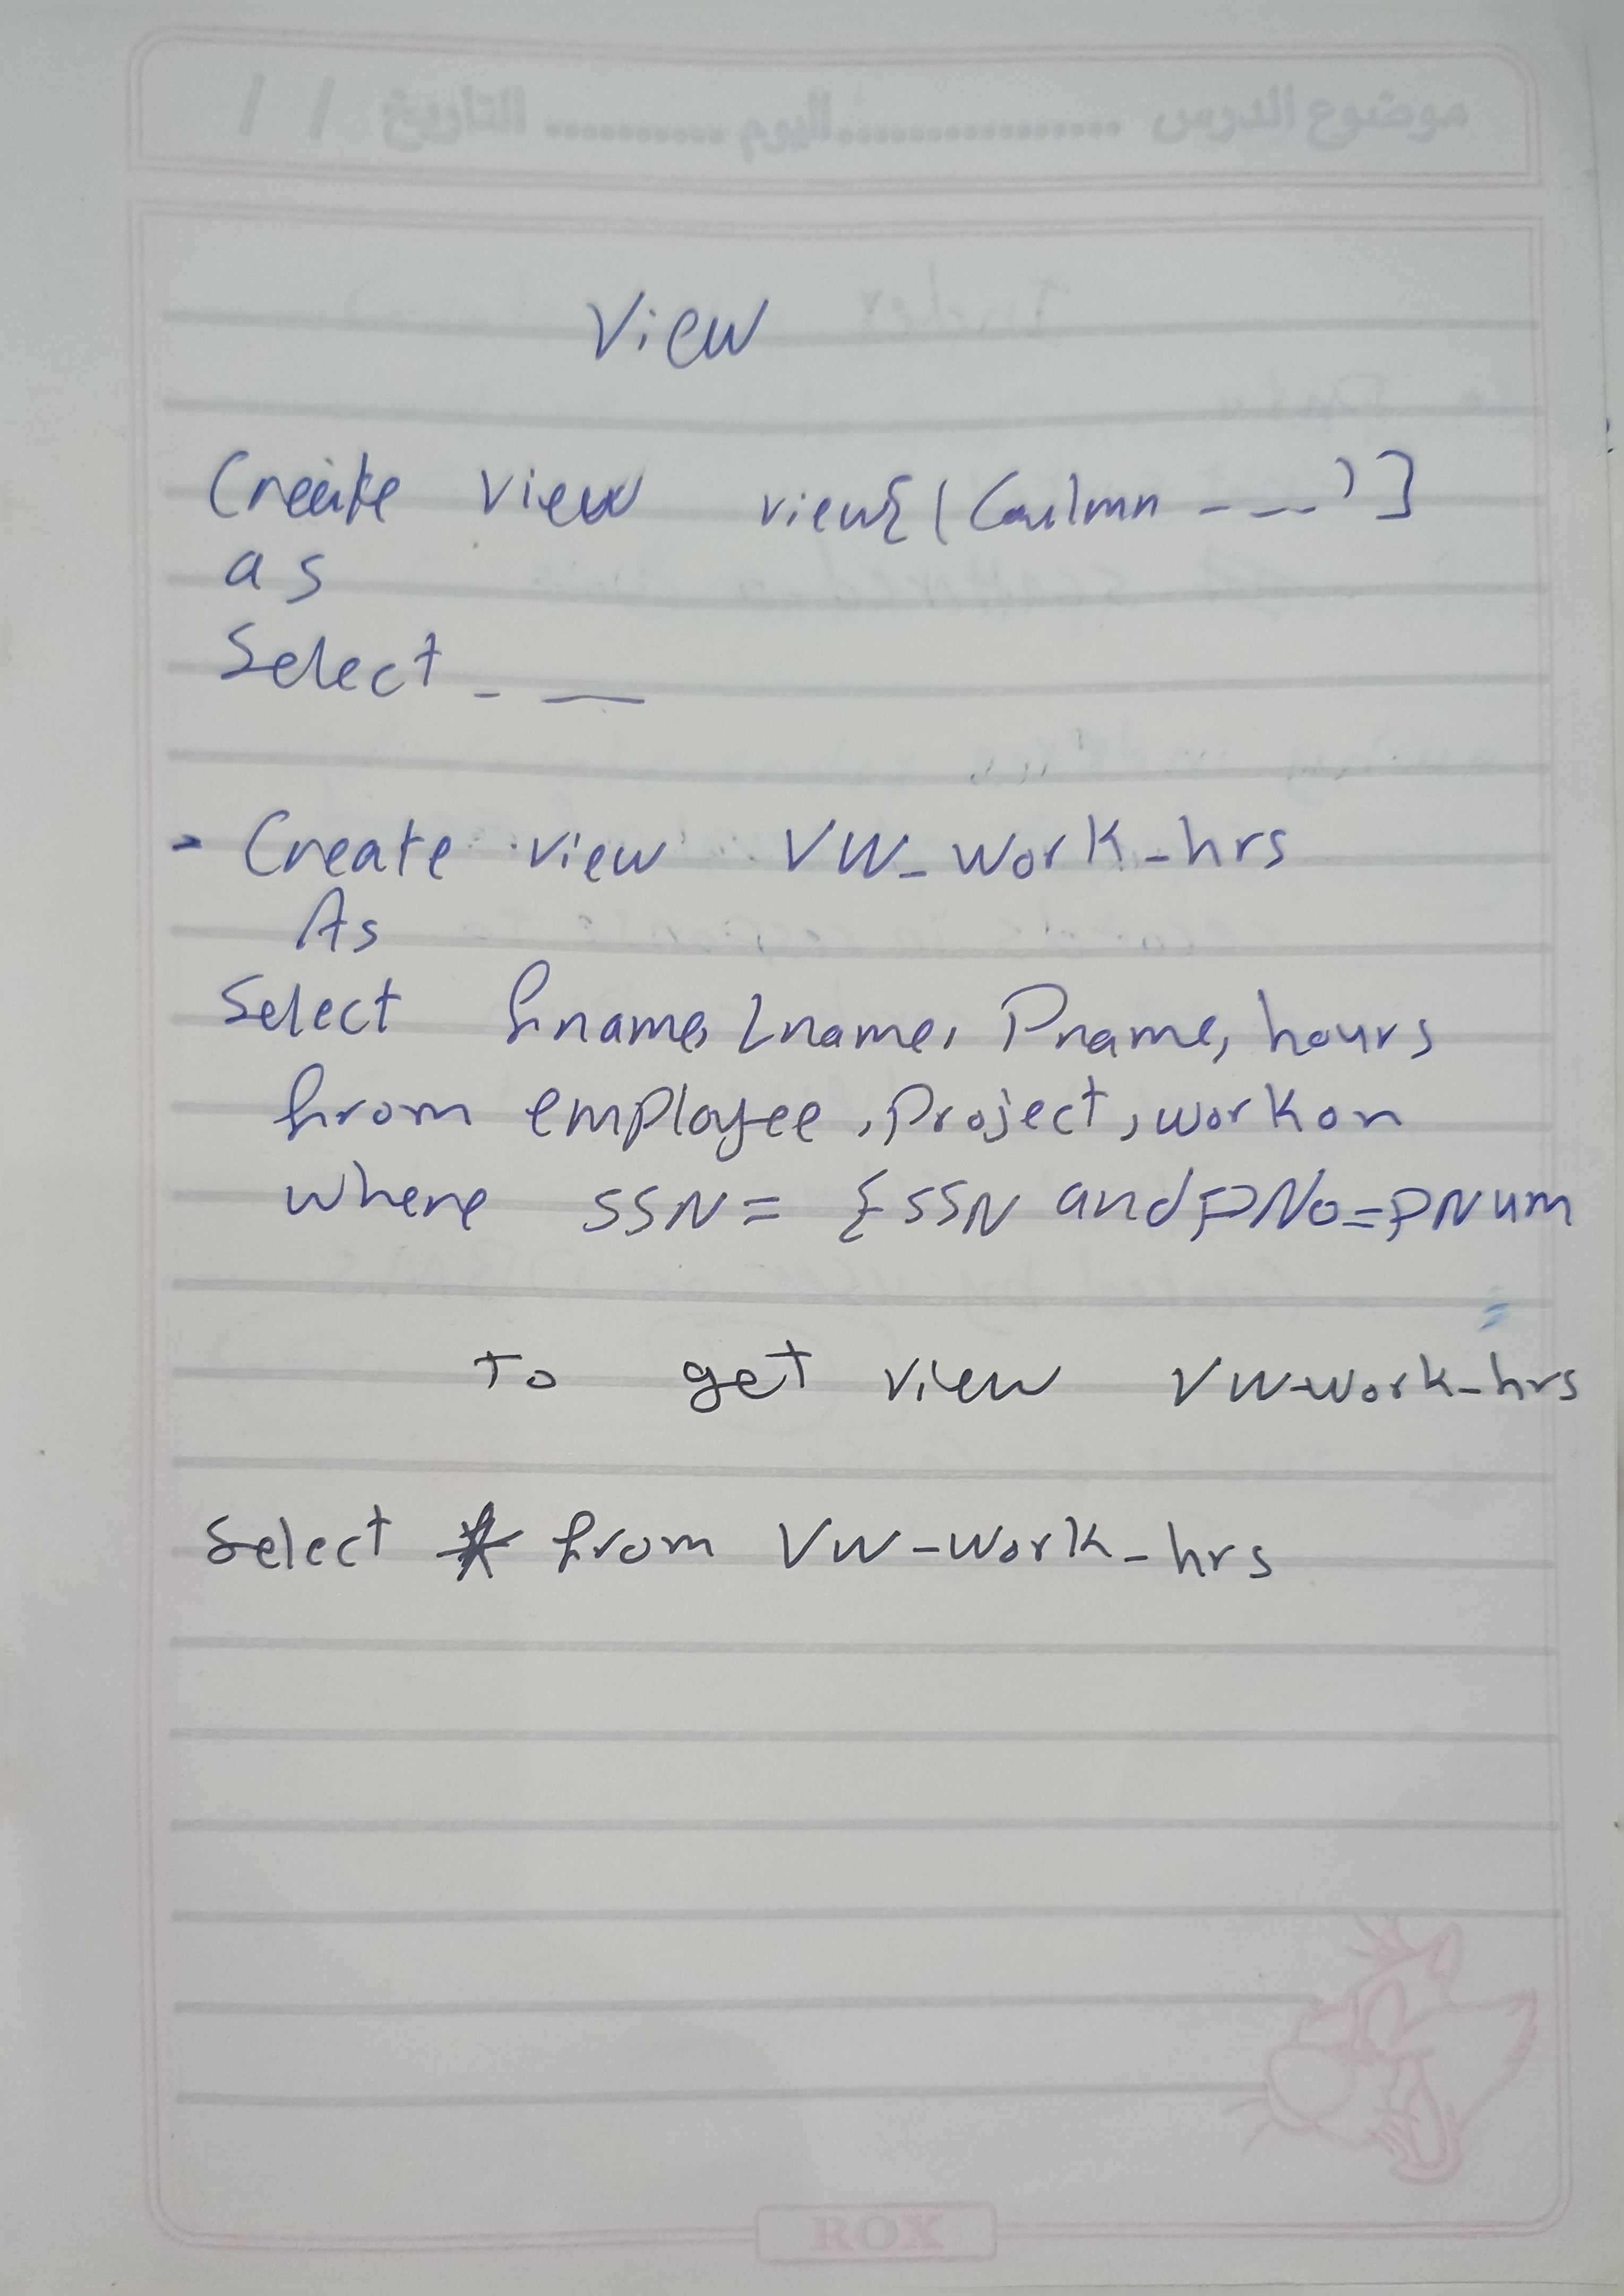 View
Create view view[(Coulmn - __)]
as
Select - __
- Create view VW_work_hrs
As
Select fname, Lname, Pname, hours
from employee, Project, workon
where SSN = ESSN and PNo=PNum
To get view VW-work_hrs
Select * from VW-work_hrs
ROX